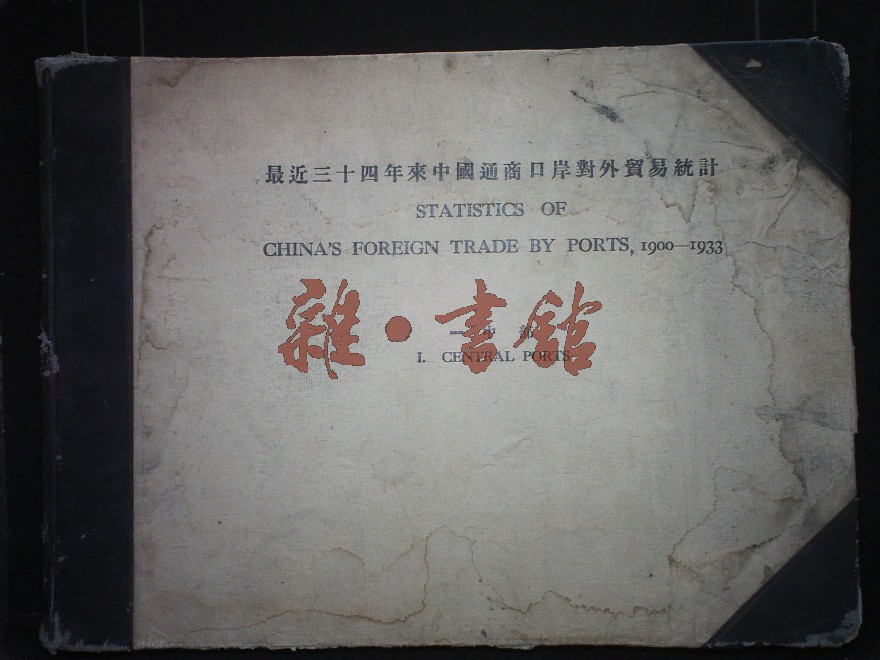 最近三十四年來中國通商口岸對外貿易統計
STATISTICS OF
CHINA'S FOREIGN TRADE BY PORTS, 1900—1933
雜·書館
I. CENTRAL PORTS